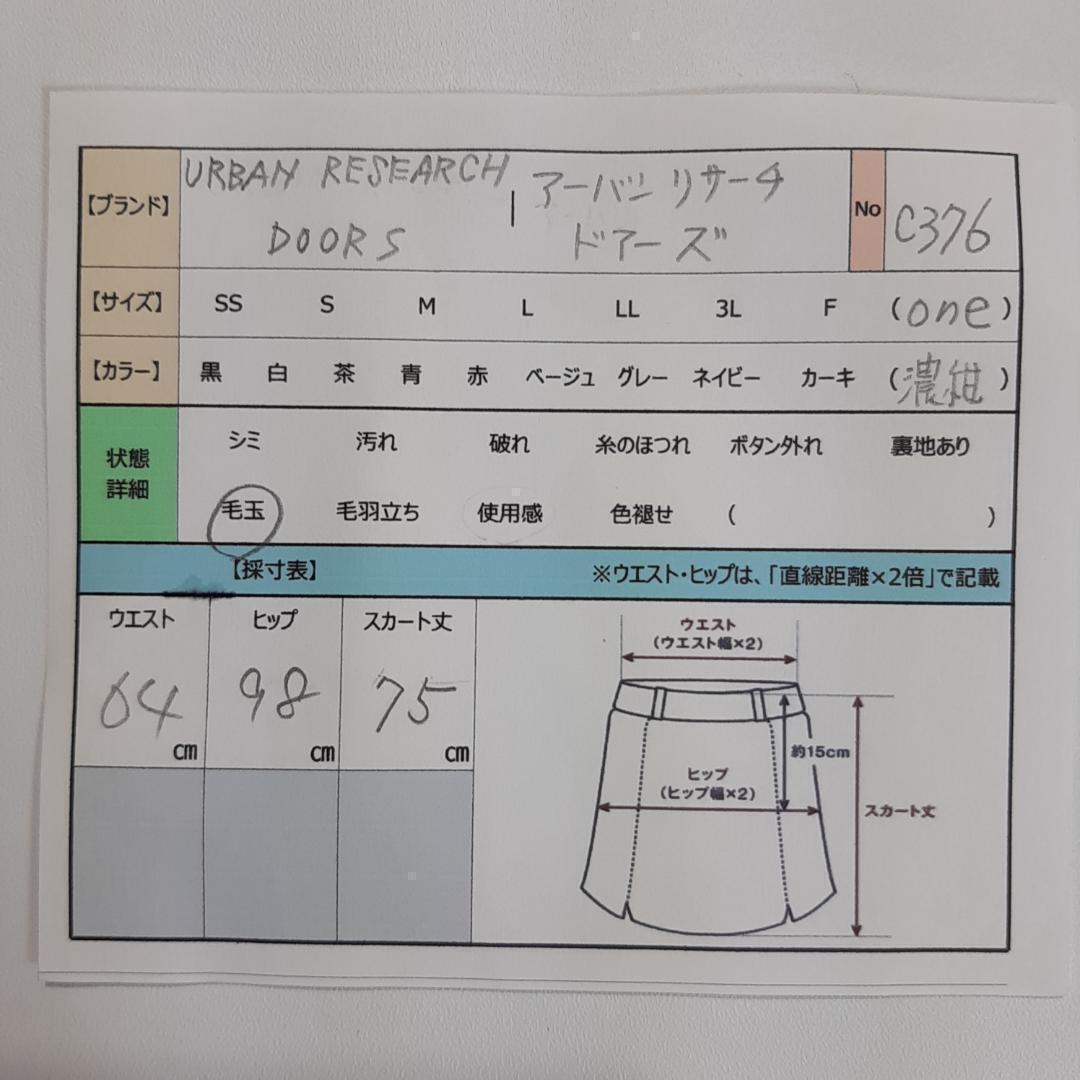 【ブランド】 URBAN RESEARCH | アーバンリサーチ No C376
DOORS ドアーズ
【サイズ】 SS S M L LL 3L F (one)
【カラー】 黒 白 茶 青 赤 ベージュ グレー ネイビー カーキ (濃紺)
状態 シミ 汚れ 破れ 糸のほつれ ボタン外れ 裏地あり
詳細 毛玉 毛羽立ち 使用感 色褪せ ( )
【採寸表】 ※ウエスト・ヒップは、「直線距離×2倍」で記載
ウエスト ヒップ スカート丈
64cm 98cm 75cm
ウエスト
(ウエスト幅×2)
約15cm
ヒップ
(ヒップ幅×2)
スカート丈